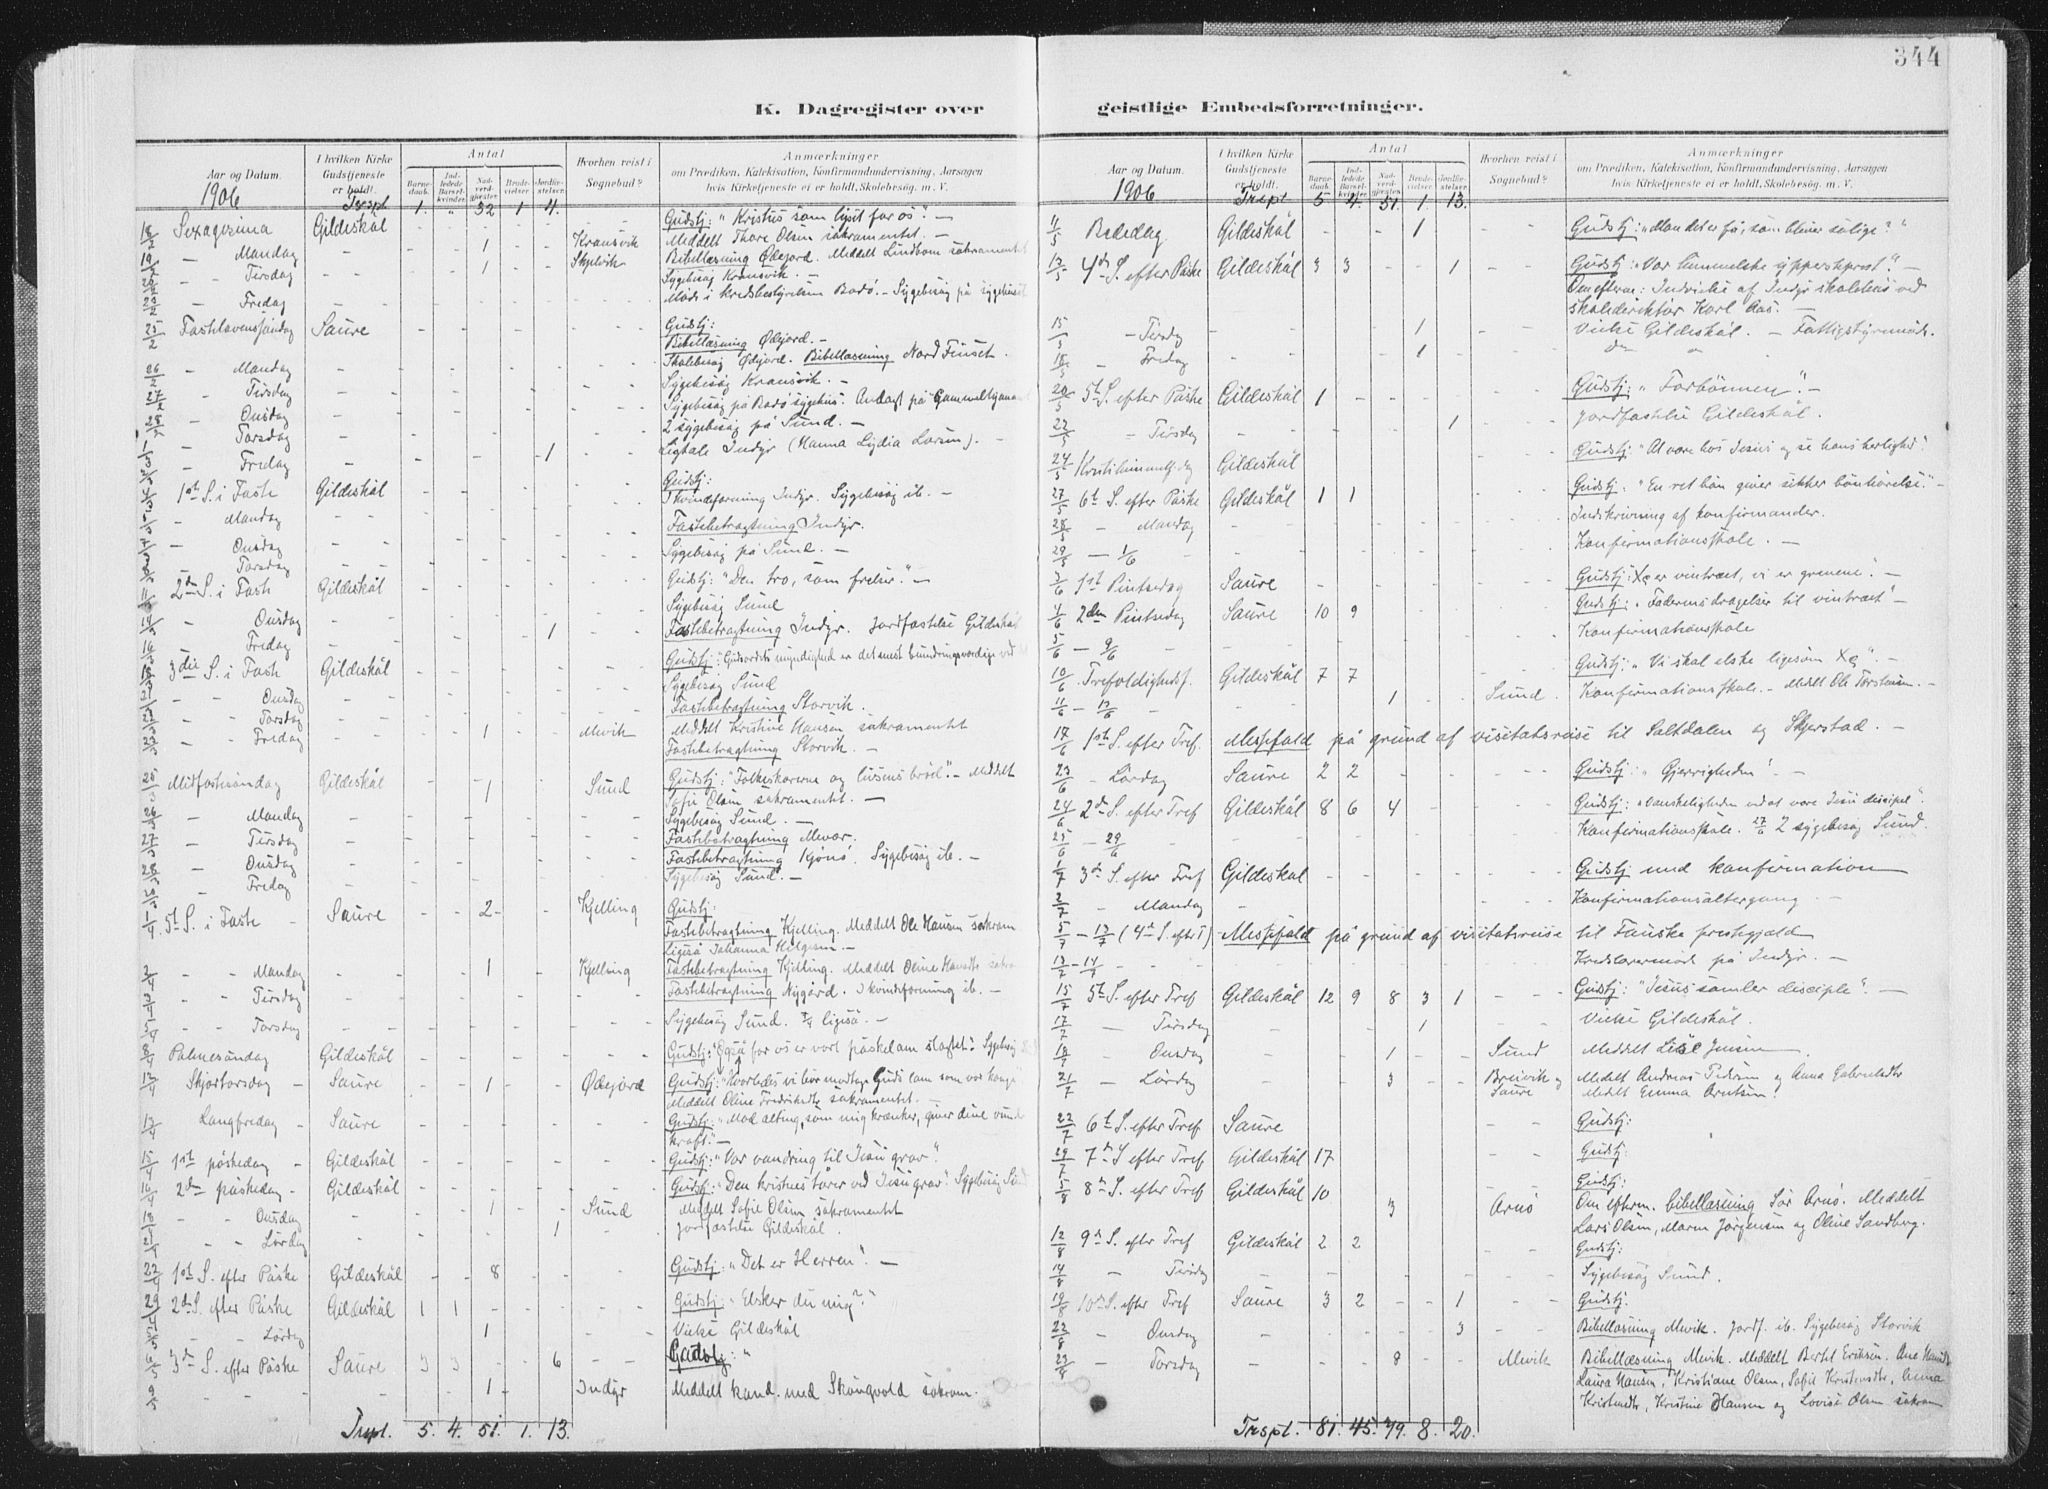 344
K. Dagregister over
geistlige Embedsforretninger.
Aar og Datum.
1906
I hvilken Kirke Gudstjeneste er holdt.
Antal
Barnedaab.
Indledede Barselkvinder.
Nadverdgjester.
Brudevielser.
Jordfæstelser.
Hvorhen reist i Sognebud?
Anmærkninger
om Prædiken, Katekisation, Konfirmandundervisning, Aarsagen
hvis Kirketjeneste ei er holdt, Skolebesøg m. V.
Trspt. 1. " 32 1 4.
18/2 Sexagesima Gildeskål Gudstj: "Kristus som lyset for os". —
19/2 Mandag 1 Kransvik Meddelt Thore Olsen sakramentet. —
Tirsdag 1 Skjelvik Bibellæsning Ødejord. Meddelt Lindbom sakramentet
Sygebesøg Kransvik. —
Fredag Møde i Kredsbestyrelsen Bodø. — Sygebesøg på sygehuset
25/2 Fastelavenssøndag Saure Gudstj:
Bibellæsning Ødejord. —
26/2 Mandag Skolebesøg Ødejord. Bibellæsning Nord Finset.
27/2 Tirsdag Sygebesøg Kransvik. —
28/2 Onsdag Sygebesøg på Bodø sygehus. Andagt på
Torsdag 2 sygebesøg på Sund. —
Fredag 1 Ligtale Indyr (Hanna Lydia Larsen). —
1ste S. i Faste Gildeskål Gudstj:
Mandag Kvindeforening Indyr. Sygebesøg ib. —
Onsdag Fastebetragtning Indyr.
Torsdag Sygebesøg på Sund. —
2den S. i Faste Gildeskål Gudstj: "Den tro, som frelser." —
Onsdag Sygebesøg Sund
Fredag 1 Fastebetragtning Indyr. Jordfæstelse Gildeskål
3die S. i Faste Gildeskål Gudstj: "Gudsordets myndighed er det mest beundringsværdige ved
Onsdag Sygebesøg Sund
Torsdag Fastebetragtning Storvik.
Fredag 1 Mevik Meddelt Kristine Hansen sakramentet
Fastebetragtning Storvik. —
25/3 Midfastesøndag Gildeskål 1 Sund Gudstj: "Folkeskarerne og livsens brød". — Meddelt
Sofie Olsen sakramentet. —
26/3 Mandag Sygebesøg Sund. —
27/3 Tirsdag Fastebetragtning Mevær.
28/3 Onsdag Fastebetragtning Kjønø. Sygebesøg ib. —
Fredag Sygebesøg Sund. —
1/4 5te S. i Faste Saure 2 Kjelling Gudstj:
Fastebetragtning Kjelling. Meddelt Ole Hansen sakram
ligeså Johanna Helgesen. —
2/4 Mandag 1 Kjelling Fastebetragtning Kjelling. Meddelt Oline Hansdtr sakra
Tirsdag Fastebetragtning Nygård. Kvindeforening ib. —
Torsdag Sygebesøg Sund. 7/4 ligeså. —
8/4 Palmesøndag Gildeskål Gudstj: "Også for os er vort påskelam slagtet". Sygebesøg
12/4 Skjærtorsdag Saure 1 Ødejord Gudstj: "Hvorledes vi bør modtage Guds lam som vor konge"
Meddelt Oline Fredriksdtr sakramentet. —
13/4 Langfredag Saure Gudstj: "Mod alting, som mig krænker, giver dine vunder
kraft". —
15/4 1ste påskedag Gildeskål Gudstj: "Vor vandring til Jesu grav".
16/4 2den påskedag Gildeskål Gudstj: "Den kristnes tårer ved Jesu grav". Sygebesøg Sund
18/4 Onsdag 1 Sund Meddelt Sofie Olsen sakramentet
21/4 Lørdag 1 Jordfæstelse Gildeskål.
22/4 1ste S. efter Påske Gildeskål 8 Gudstj: "Det er Herren". —
29/4 2den S. efter Påske Gildeskål 1 1 Gudstj: "Elsker du mig?"
Lørdag 1 Vielse Gildeskål
6/5 3die S. efter Påske Saure 3 3 6 Gudstj: "
9/5 1 Indyr Meddelt kand. med Skongvold sakram.
Trspt. 5. 4. 51. 1. 13.
Aar og Datum.
1906
I hvilken Kirke Gudstjeneste er holdt.
Antal
Barnedaab.
Indledede Barselkvinder.
Nadverdgjester.
Brudevielser.
Jordfæstelser.
Hvorhen reist i Sognebud?
Anmærkninger
om Prædiken, Katekisation, Konfirmandundervisning, Aarsagen
hvis Kirketjeneste ei er holdt, Skolebesøg m. V.
Trspt 5 4. 51. 1 13.
11/5 Bededag Gildeskål 1 Gudstj: "Mon det er få, som bliver salige?"
13/5 4de S. efter Påske Gildeskål 3 3 1 Gudstj: "Vor himmelske ypperstepræst". —
Om efterm: Indvielse af Indyr skolehus ved
skoledirektør Karl Aas. —
15/5 Tirsdag 1 Vielse Gildeskål. — Fattigstyremøde.
18/5 Fredag 1 do "
20/5 5te S. efter Påske Gildeskål 1 Gudstj: "Forbønnen". —
22/5 Tirsdag 1 Jordfæstelse Gildeskål.
24/5 Kristi himmelf.dag Gildeskål Gudstj: "At være hos Jesus og se hans herlighed".
27/5 6te S. efter Påske Gildeskål 1 1 Gudstj: "En ret bøn giver sikker bønhørelse". —
28/5 Mandag Indskrivning af konfirmander.
29/5 — 1/6 Konfirmationsskole. —
3/6 1ste Pintsedag Saure Gudstj: "Xs er vintræet, vi er grenene". —
4/6 2den Pintsedag Saure 10 9 Gudstj: "Faderens dragelser til vintræet" —
5/6 — 9/6 Konfirmationsskole
10/6 Trefoldighedsf. Gildeskål 7 7 Gudstj: "Vi skal elske ligesom Xs". —
11/6 — 13/6 1 Sund. Konfirmationsskole. — Medelt Ole Torstensen. —
17/6 1ste S. efter Tref. Messefald på grund af visitatsreise til Saltdalen og Skjerstad. —
23/6 Lördag Saure 2 2 Gudstj: "Gjerrigheden". —
24/6 2den S. efter Tref Gildeskål 8 6 4 Gudstj: "Vanskeligheden ved at være Jesu discipel".
25/6 — 29/6 Konfirmationsskole. 27/6 2 sygebesøg Sund.
1/7 3die S. efter Tref Gildeskål Gudstj med konfirmation
2/7 Mandag Konfirmationsaltergang. —
5/7 — 13/7 (4de S. efter T) Messefald på grund af visitatsreise til Fauske prestegjæld
13/7 — 14/7 Kredslærermøde på Indyr. —
15/7 5te S. efter Tref Gildeskål 12 9 8 3 1 Gudstj: "Jesus samler disciple". —
17/7 Tirsdag 1 Vielse Gildeskål.
18/7 Onsdag 1 Sund Meddelt Jensen
21/7 Lördag 3 Breivik og Saure Medelt Andreas Pedersen og Anna Gabrielsdtr
Medelt Emma Arntsen.
22/7 6te S. efter Tref Saure Gudstj:
29/7 7de S efter Tref Gildeskål 17 Gudstj:
5/8 8de S. efter Tref Gildeskål 10 Gudstj:
3 Arnø Om efterm. bibellæsning Sør Arnø. Meddelt
Lars Olsen, Maren Jørgensen og Oline Sandberg.
12/8 9de S. efter Tref Gildeskål 2 2 Gudstj:
14/8 Tirsdag Sygebesøg Sund.
19/8 10de S. efter Tref Saure 3 2 1 Gudstj.
22/8 Onsdag 3 Bibellæsning Mevik. Jordf. ib. Sygebesøg Storvik
23/8 Torsdag 8 Mevik Bibellæsning Mevik. Meddelt Bertel Eriksen. Ane
Laura Hansen, Kristiane Olsen, Sofie Kristensdtr, Anna
Kristensdtr, Kristine Hansen og Lovise Olsen sakram
Trspt. 81. 45. 79. 8. 20.